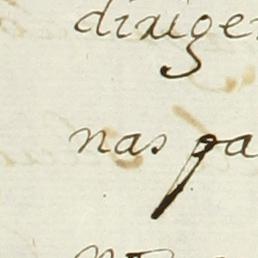 dirige
nas pa